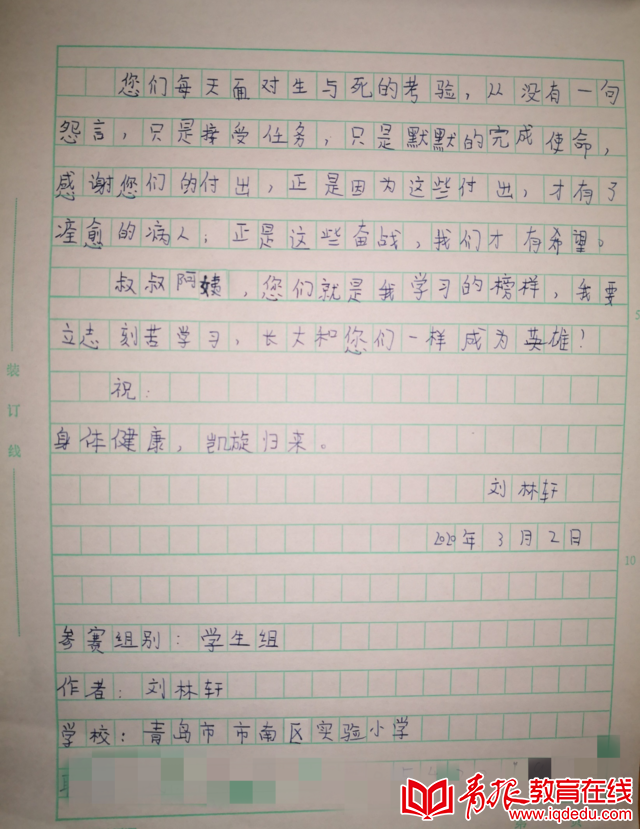 您们每天面对生与死的考验，从没有一句
怨言，只是接受任务，只是默默的完成使命，
感谢您们的付出，正是因为这些付出，才有了
痊愈的病人；正是这些奋战，我们才有希望。
叔叔阿姨，您们就是我学习的榜样，我要
立志刻苦学习，长大和您们一样成为英雄！
祝：
身体健康，凯旋归来。
刘林轩
2020年3月2日
参赛组别：学生组
作者：刘林轩
学校：青岛市市南区实验小学
装订线
5
10
青报教育在线
www.iqdedu.com